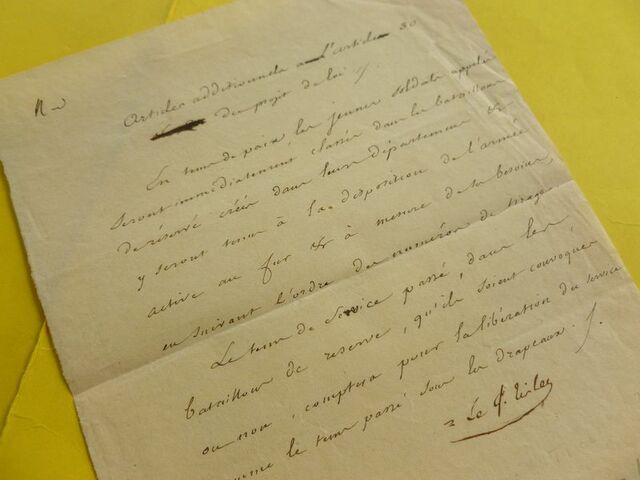 articles additionnels a L'article 30
du projet de loi
En tems de paix les jeunes soldats appelés
seront immédiatement classés dans les bataillons
de réserve créés dans leurs département &
y seront tenus à la disposition de l'armée
active au fur & à mesure de ses besoins,
en suivant l'ordre des numéros de tirage.
Le tems de service passé, dans les
bataillons de reserve, qu'ils soient convoqués
ou non, comptera pour la libération du service
comme le tems passé sous les drapeaux.
Le